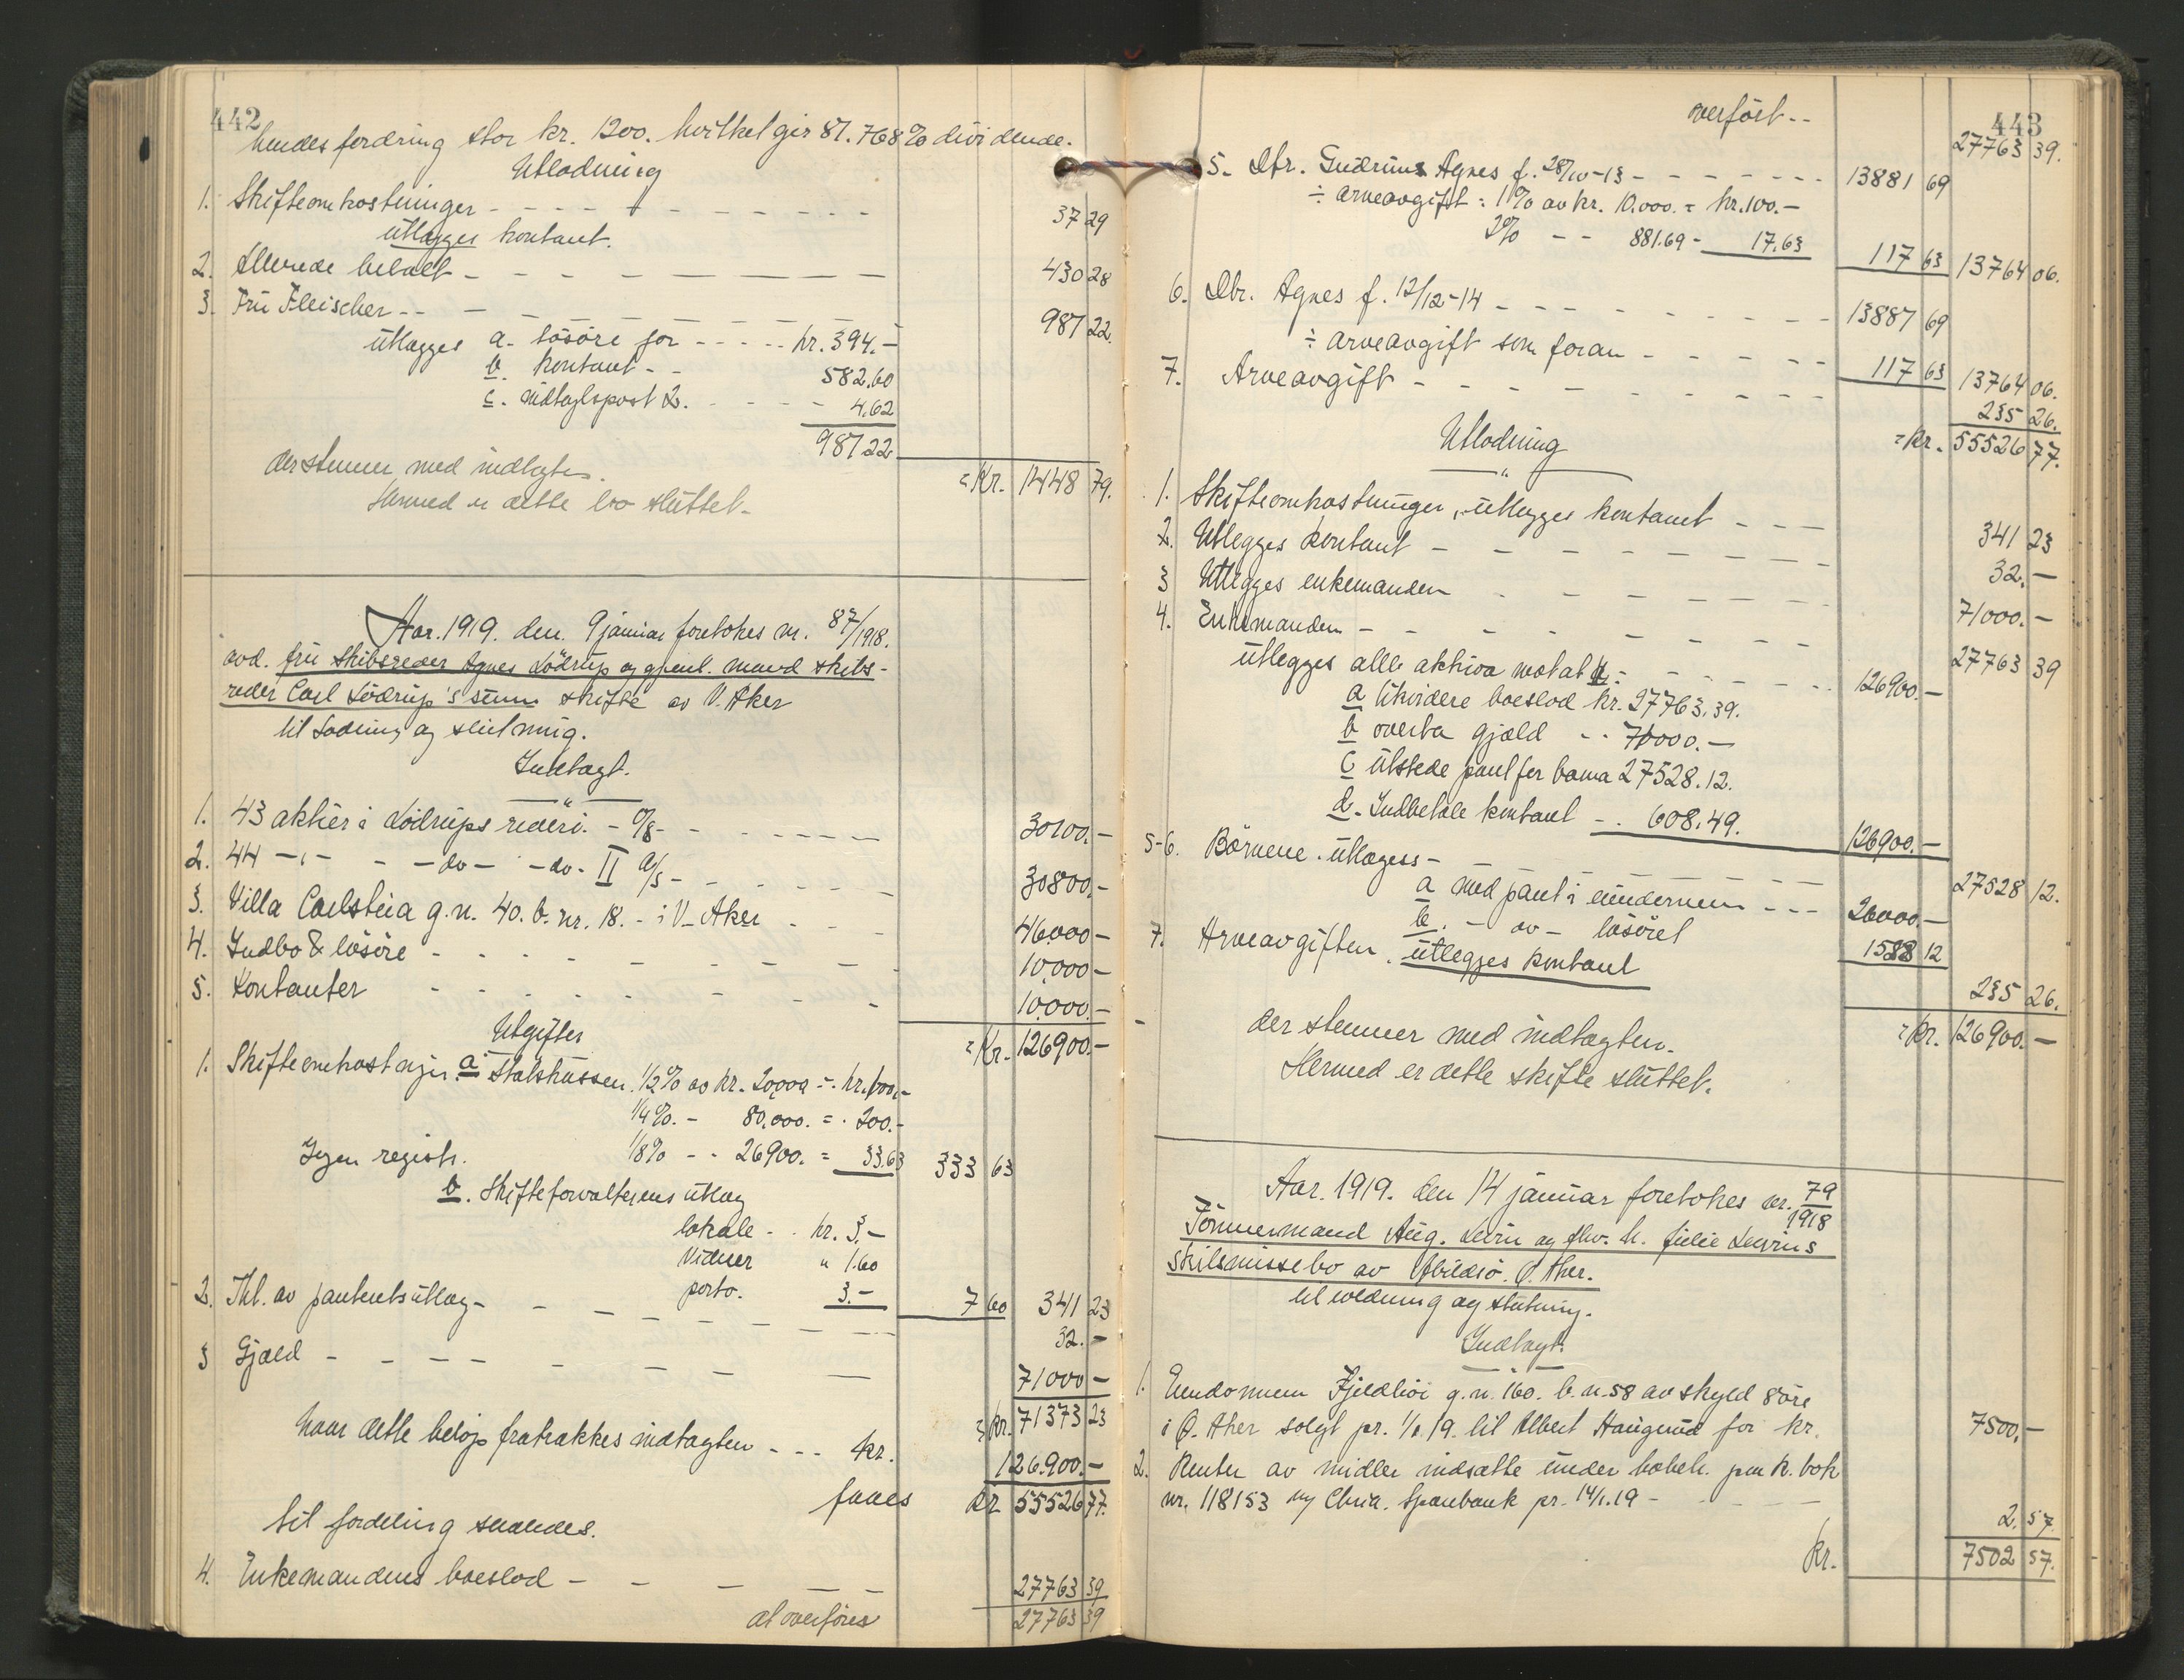 442
hendes fordring stor kr. 1200. hvilket gir 81.768% dividende.
Utlodning
1. Skifteomkostninger - - - - 37 29
utlægges kontant.
2. Allerede betalt - - - - 430 28
3. Fru Fleischer - - - - 987 22
utlægges a. løsøre for - - - - kr. 394.-
b. kontant - - 582.60
c. indtagtspost 2. - - - 4.62
987 22
= Kr. 1448 79.
der stemmer med indtagten.
Hermed er dette bo sluttet.
Aar. 1919. den 9 januar foretokes nr. 87/1918.
avd. fru skibsreder Agnes Lødrup og gjenl. mand skibs-
reder Carl Lødrup's sam. skifte av V. Aker
til Lodning og slutning.
Indtagt.
1. 43 aktier i Lødrups rederi - A/S - - - - 30100.-
2. 44 -"- - - do - - do - II A/S - - - - 30800.-
3. Villa Carlsteia g.n. 40. b.nr. 18. - i V. Aker - - - 46000-
4. Indbo & løsøre - - - - 10.000-
5. Kontanter - - - - 10.000.-
= Kr. 126900.-
Utgifter
1. Skifteomkostninger. a. Statskassen. 1/2% av kr. 20000 = kr. 100.-
1/4%. - 80.000. = - 200.-
Ingen registr. 1/8% - - 26900. = 33.63 333 63
b. Skifteforvalterens utlæg
lokale - - kr. 3.-
Vidner " 1.60
porto. 3.- 7 60 341 23
2. Tkl. av panteutsutlæg - - - - 32.-
3 Gjæld - - - - 71000-
= kr. 71373 23
naar dette beløp fratrækkes indtagten - - - kr. 126.900.-
faaes kr 55526 77.
til fordeling saaledes.
4. Enkemandens boeslod - - - - 27763 39
at overføres 27763 39
443
overført - - 27763 39.
5. Dtr. Gudrun Agnes f. 28/10-13 - - - - 13881 69
÷ arveavgift = 1% av kr. 10.000. = kr. 100.-
2% - - 881.69 - 17.63 117 63 13764 06.
6. Dtr. Agnes f. 12/12-14 - - - - 13887 69
÷ arveavgift som foran - - - - 117 63 13764 06.
7. Arveavgift - - - - 235 26.
= kr. 55526 77.
Utlodning
1. Skifteomkostninger, utlægges kontant - - - 341 23
2. Utlegges kontant - - - - 32.-
3 Utlegges enkemanden - - - - 71000.-
4. Enkemanden - - - - 27763 39
utlegges alle aktiva motat: - - - 126900.-
a likvidere boeslod kr. 27763.39.
b overta gjæld - - 71000.-
c utstede pant for barna 27528.12.
d. Indbetale kontant - - 608.49. 126900.-
5-6. Børnene utlægges - - - - 27528 12.
a med pant i eiendommen - - - 26000.-
b. - do - løsøret 1528 12
7. Arveavgiften. utlegges kontant 235 26.
= kr. 126900.-
der stemmer med indtagten.
Hermed er dette skifte sluttet.
Aar. 1919. den 14 januar foretokes nr. 79/1918
Tømmermand Aug. Levin og fhv. h. Julie Levins
skilsmissebo av Abildsø. Ø. Aker.
til lodning og slutning.
Indtagt.
1. Eiendommen Fjeldhøi g.n. 160. b.n. 58 av skyld 8 øre
i Ø. Aker solgt pr. 1/1.19. til Albert Haugerud for kr. 7500.-
2. Renter av midler indsatte under bobeh. paa k. bok
nr. 118153 Chria. Sparebank pr. 14/1.19 - - 2.57
kr. 7502 57.